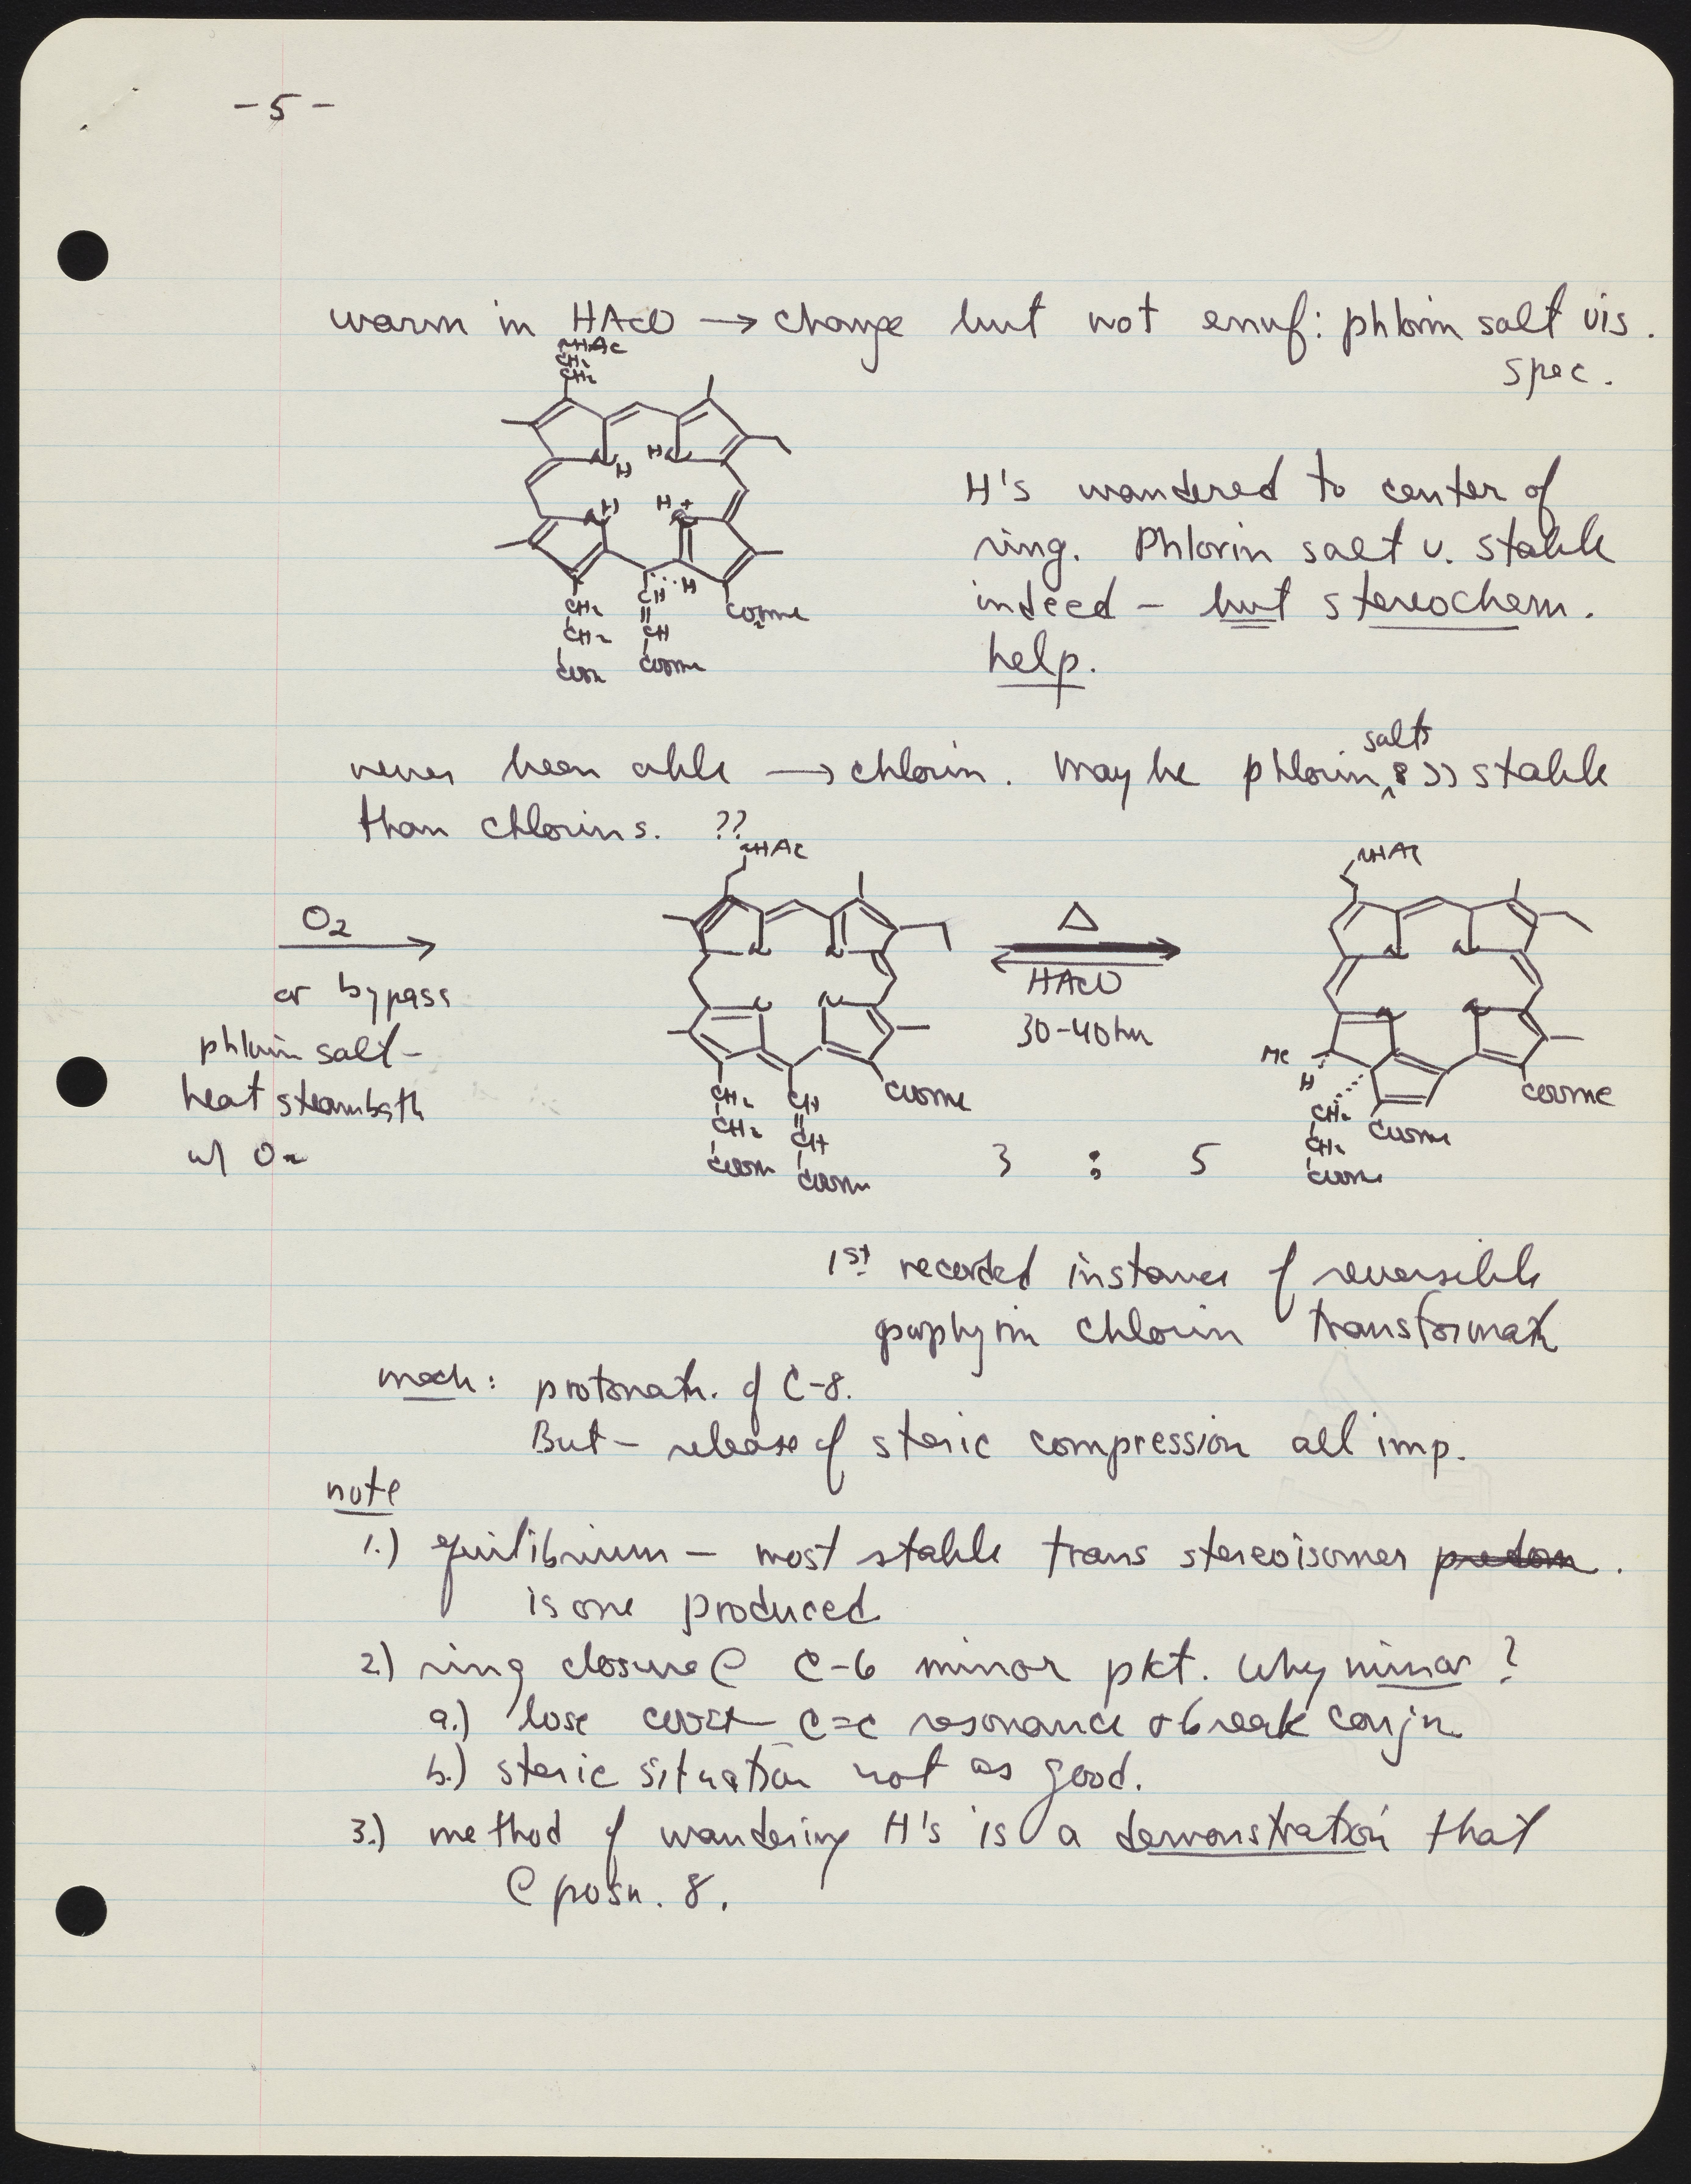 - 5 -
warm in HAcO → change but not enuf: phlorin salt vis.
spec.
NHAc
CH2
CH2
H
H
H
H+
H
CH2
CH2
CH
CH
COOMe
CO2Me
H's wandered to center of
ring. Phlorin salt v. stable
indeed - but stereochem.
help.
never been able → chlorin. Maybe phlorin salts >> stable
than chlorins. ??
O2
or bypass
phlorin salt -
heat steambath
w/ O2
NHAc
N
N
N
N
CH2
CH2
COOMe
CH
CH
COOMe
COOMe
Δ
HAcO
30-40 hr
3 : 5
NHAc
N
N
N
N
Me
H
CH2
CH2
COOMe
COOMe
COOMe
1st recorded instance of reversible
porphyrin chlorin transformatn
mech: protonatn. of C-8.
But - release of steric compression all imp.
note
1.) equilibrium - most stable trans stereoisomer predom.
is one produced
2.) ring closure @ C-6 minor pkt. Why minor?
a.) lose C=C resonance + break conjn
b.) steric situation not as good.
3.) method of wandering H's is a demonstration that
@ posn. 8.